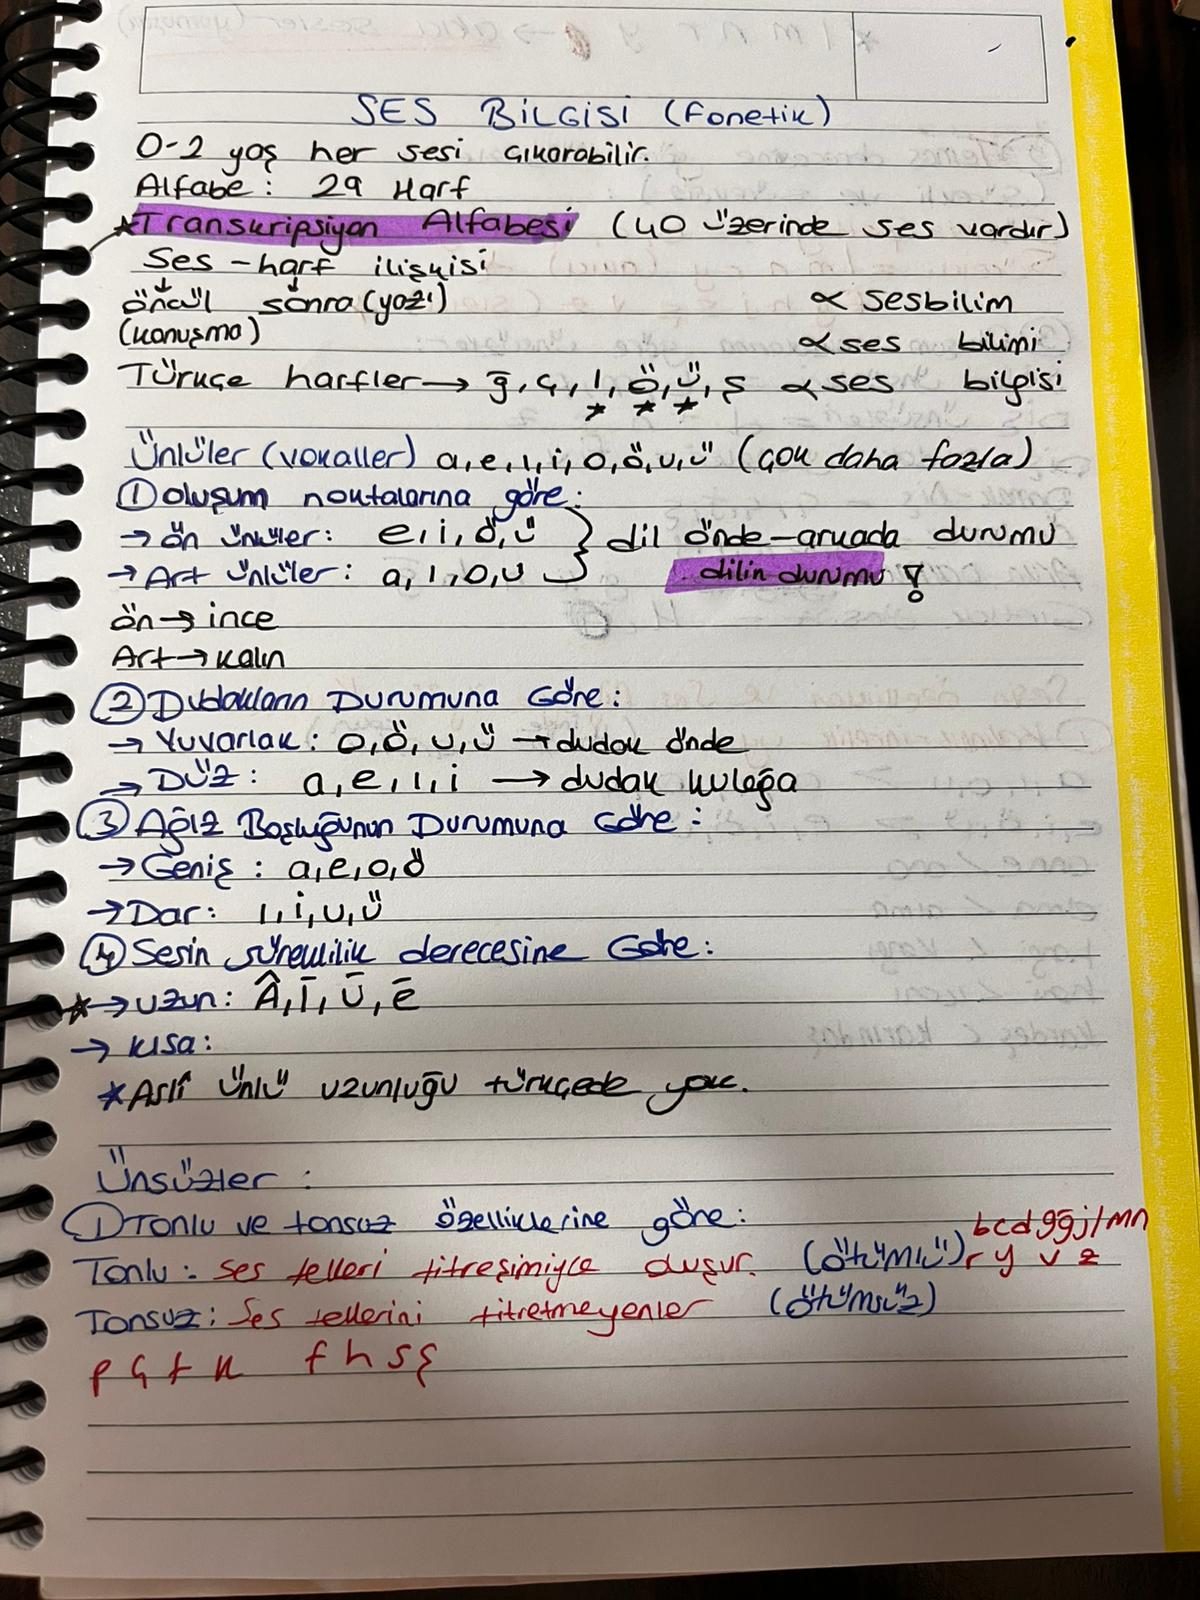 SES BİLGİSİ (Fonetik)
0-2 yaş her sesi çıkarabilir.
Alfabe: 29 Harf
*Transkripsiyon Alfabesi (40 üzerinde ses vardır)
Ses-harf ilişkisi
↓ ↓
öncül sonra (yazı) ∝ sesbilim
(konuşma) ∝ ses bilimi
Türkçe harfler → ğ, ç, ı, ö, ü, ş ∝ ses bilgisi
* * *
Ünlüler (vokaller) a, e, ı, i, o, ö, u, ü (çok daha fazla)
① oluşum noktalarına göre:
→ ön ünlüler: e, i, ö, ü } dil önde-arkada durumu
→ Art ünlüler: a, ı, o, u dilin durumu !
ön → ince
Art → kalın
② Dudakların Durumuna Göre:
→ Yuvarlak: o, ö, u, ü → dudak önde
→ DÜZ: a, e, ı, i → dudak kulağa
③ Ağız Boşluğunun Durumuna Göre:
→ Geniş: a, e, o, ö
→ Dar: ı, i, u, ü
④ Sesin süreklilik derecesine Göre:
* → uzun: Â, ī, ū, ē
→ kısa:
* Aslî ünlü uzunluğu türkçede yok.
Ünsüzler:
① Tonlu ve tonsuz özelliklerine göre: bcdgğjlmn
Tonlu: ses telleri titreşimiyle oluşur. (ötümlü) r y v z
Tonsuz: Ses tellerini titretmeyenler (ötümsüz)
p ç t k f h s ş